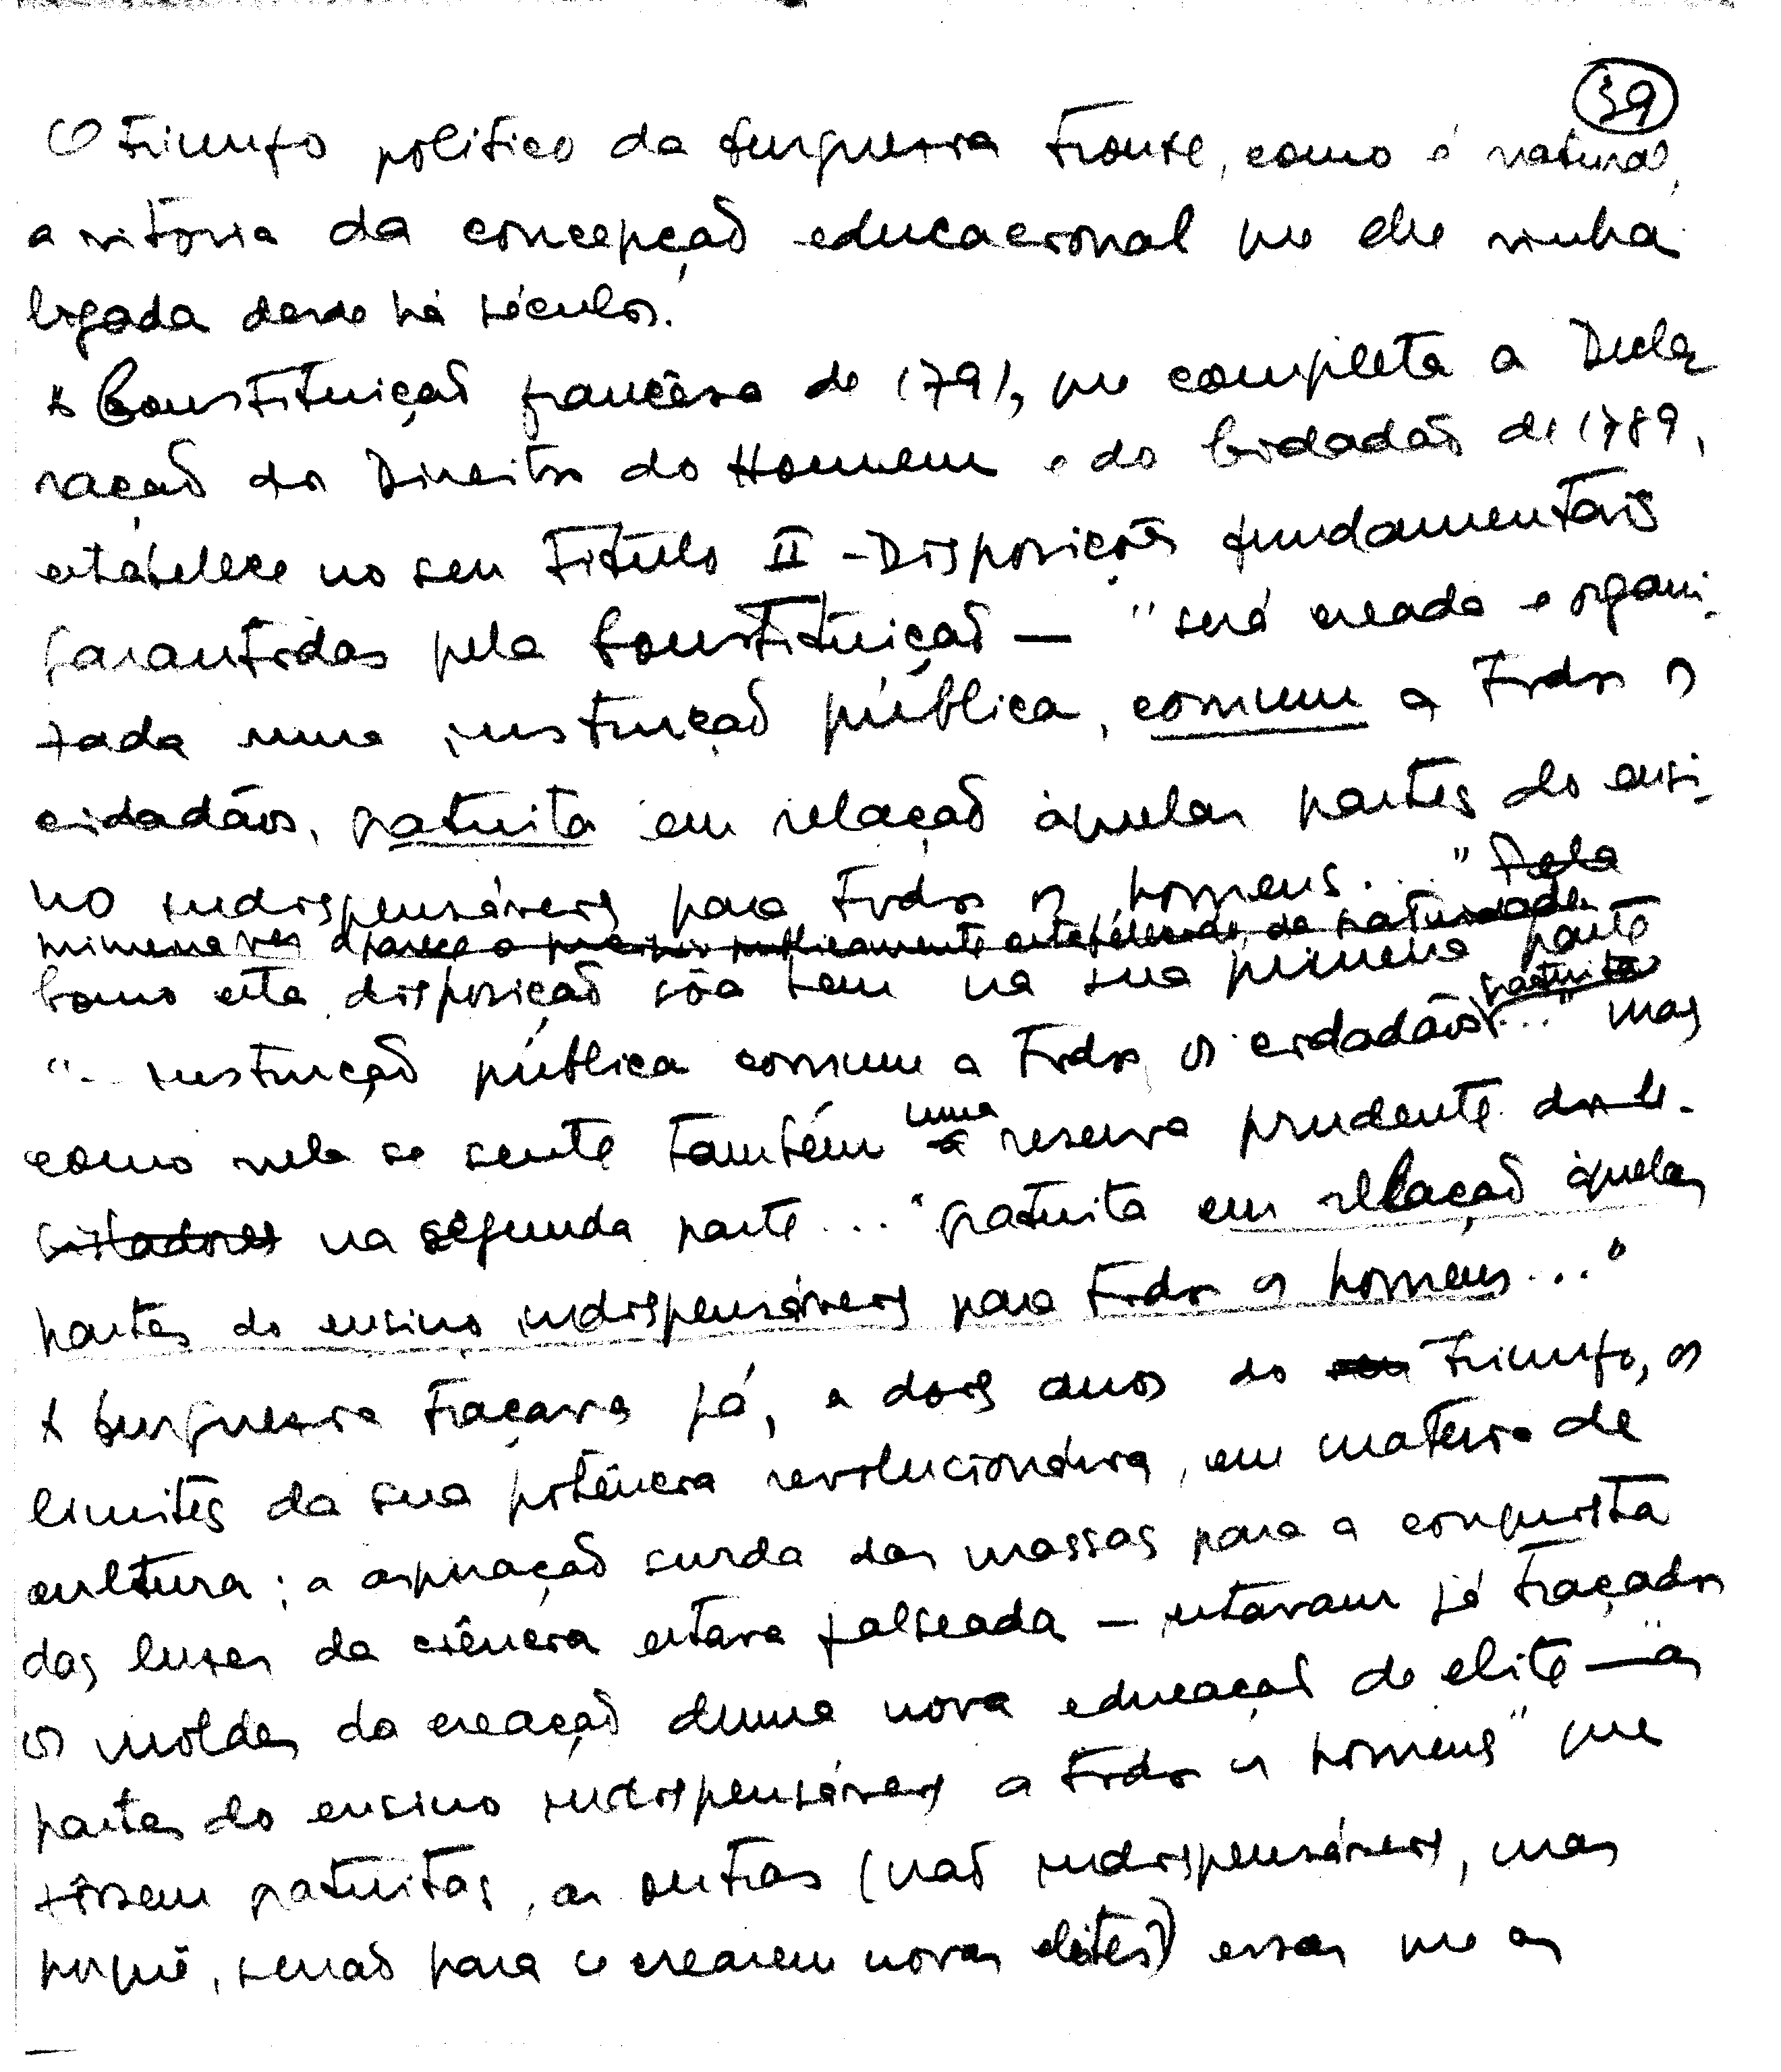 39
O triunfo político da burguesia trouxe, como é natural,
a vitória da concepção educacional que ela vinha
ligada desde há séculos.
A Constituição francêsa de 1791, que completa a Decla
ração dos Direitos do Homem e do Cidadão de 1789,
estabelece no seu Título II - Disposições fundamentais
garantidas pela Constituição — "será creada e organi-
zada uma instrução pública, comum a todos os
cidadãos, gratuita em relação àquelas partes do ensi-
no indispensáveis para todos os homens..." Pela
primeira vez aparece o princípio publicamente estabelecido, da gratuidade
Como esta disposição sôa bem na sua primeira parte
gratuita
"... instrução pública comum a todos os cidadãos..." mas
uma
como nela se sente também a reserva prudente dos le-
gisladores na segunda parte... "gratuita em relação àquelas
partes do ensino indispensáveis para todos os homens..."
A burguesia traçava já, a dois anos do seu triunfo, os
limites da sua potência revolucionária, em matéria de
cultura; a aspiração surda das massas para a conquista
das luzes da ciência estava falseada — estavam já traçados
os moldes da creação duma nova educação de elite — "as
partes do ensino indispensáveis a todos os homens" que
fôssem gratuitas, as outras (não indispensáveis, mas
porquê, senão para se crearem novas elites?) essas que as